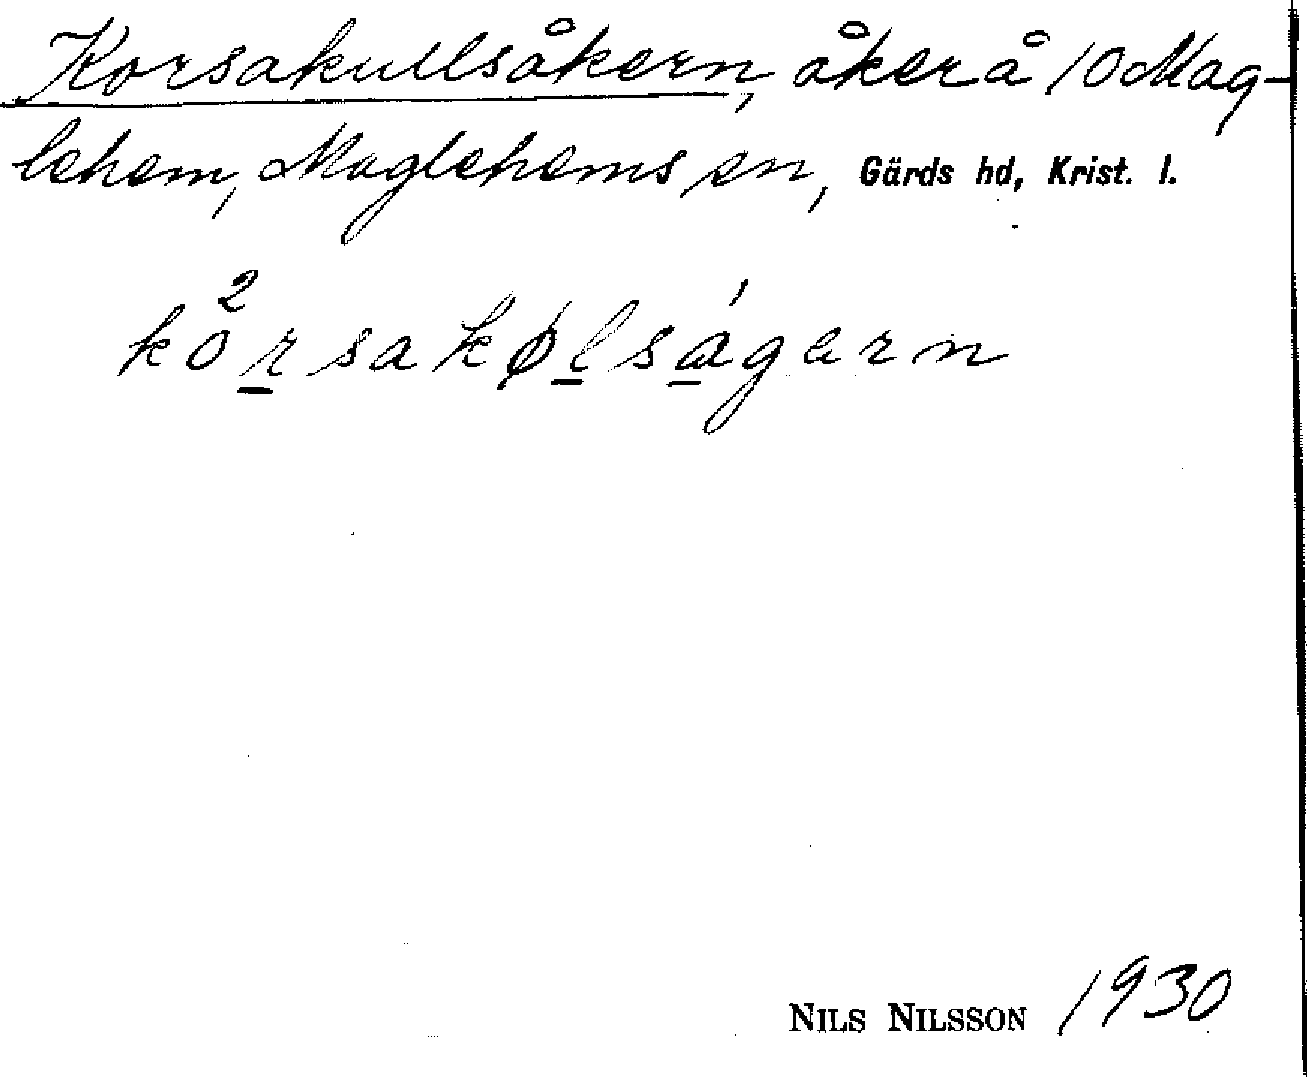 Korsakullsåkern, åker å 10 Mag-
lehem, Maglehems sn, Gärds hd, Krist. l.
ko²rsakølságern
NILS NILSSON 1930